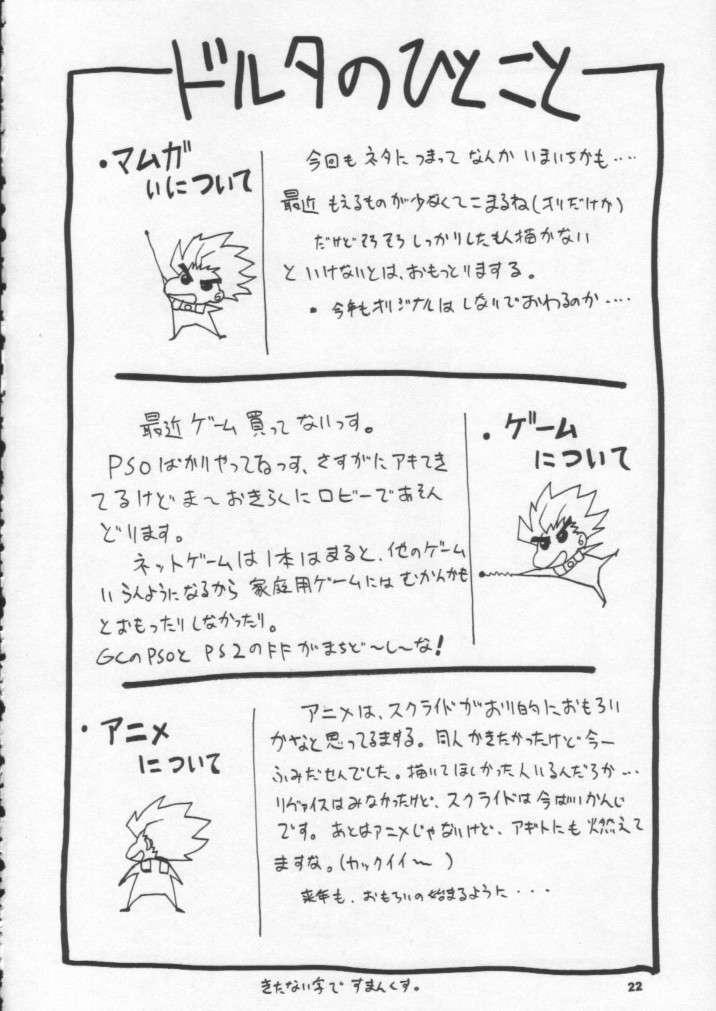 ドルタのひとこと
・マムガ
いについて
今回もネタにつまって なんか いまいちかも‥‥
最近 もえるものが少なくてこまるね(オリだけか)
だけどそろそろしっかりしたもん描かない
といけないとは、おもっとりまする。
・今年もオリジナルは しないでおわるのか‥‥
・ゲーム
について
最近ゲーム買ってないっす。
PSOばかりやってるっす、さすがにアキてき
てるけどま〜おきらくにロビーであそん
どります。
ネットゲームは1本はまると、他のゲーム
いらんようになるから 家庭用ゲームには むかんかも
とおもったりしなかったり。
GCのPSOと PS2のFFがまちど〜し〜な!
・アニメ
について
アニメは、スクライドがおり的におもろい
かなと思ってるまする。同人かきたかったけど今一
ふみだせんでした。描いてほしかった人いるんだろか…
リヴァイスはみなかったけど、スクライドは今ばいかんじ
です。あとはアニメじゃないけど、アギトにも燃えて
ますな。(カックイイ〜)
来年も、おもろいの始まるように・・・
きたない字で すまんくす。
22